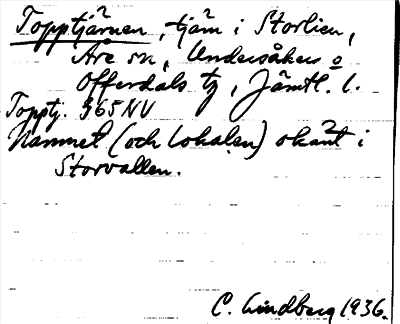 Topptjärnen, tjärn i Storlien,
Åre sn, Undersåkers o
Offerdals tg, Jämtl. l.
Topptj. 965 NV
Namnet (och lokalen) okänt i
Storvallen.
C. Lindberg 1936.